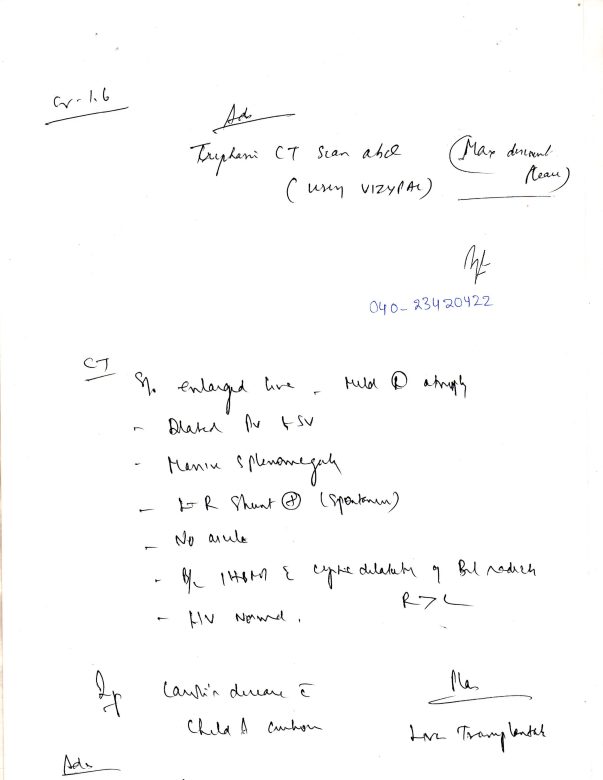 Cr - 1.6
Adv
Triphasic CT Scan abd (Max discount
(using VIZIPAC) please)
040-23420422
CT
S/o enlarged live - Mild R atrophy
- Dilated PV & SV
- Massive Splenomegaly
- L-R Shunt + (Spontaneous)
- No ascite
- B/L IHBR & cystic dilatate of Bil radicle
R > L
- HV Normal.
Imp Caroli's disease c̄ Plan
Child A cirrhosis Liver Transplantat
Adv